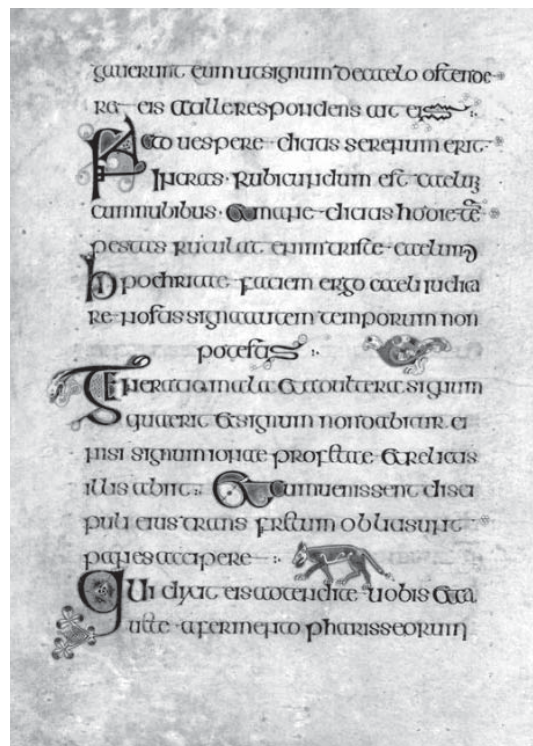 gauerunt eum ut signum de caelo ostende
ra eis at ille respondens ait eis
Facto uespere dicitis serenum erit
rubicundum est caelum
cum nubibus · Et mane dicitis hodie te̅
pestas rutilat enim triste caelum
hipochritae faciem ergo caeli iudica
re nostis signa autem temporum non
potestis
Generatio mala et adultera signum
quaerit et signum non dabitur ei
nisi signum ionae profetae et relictis
illis abiit Et cum uenissent disci
puli eius trans fretum obliti sunt
panes accipere
Qui dixit eis adtendite uobis et ca
uete a fermento pharisseorum